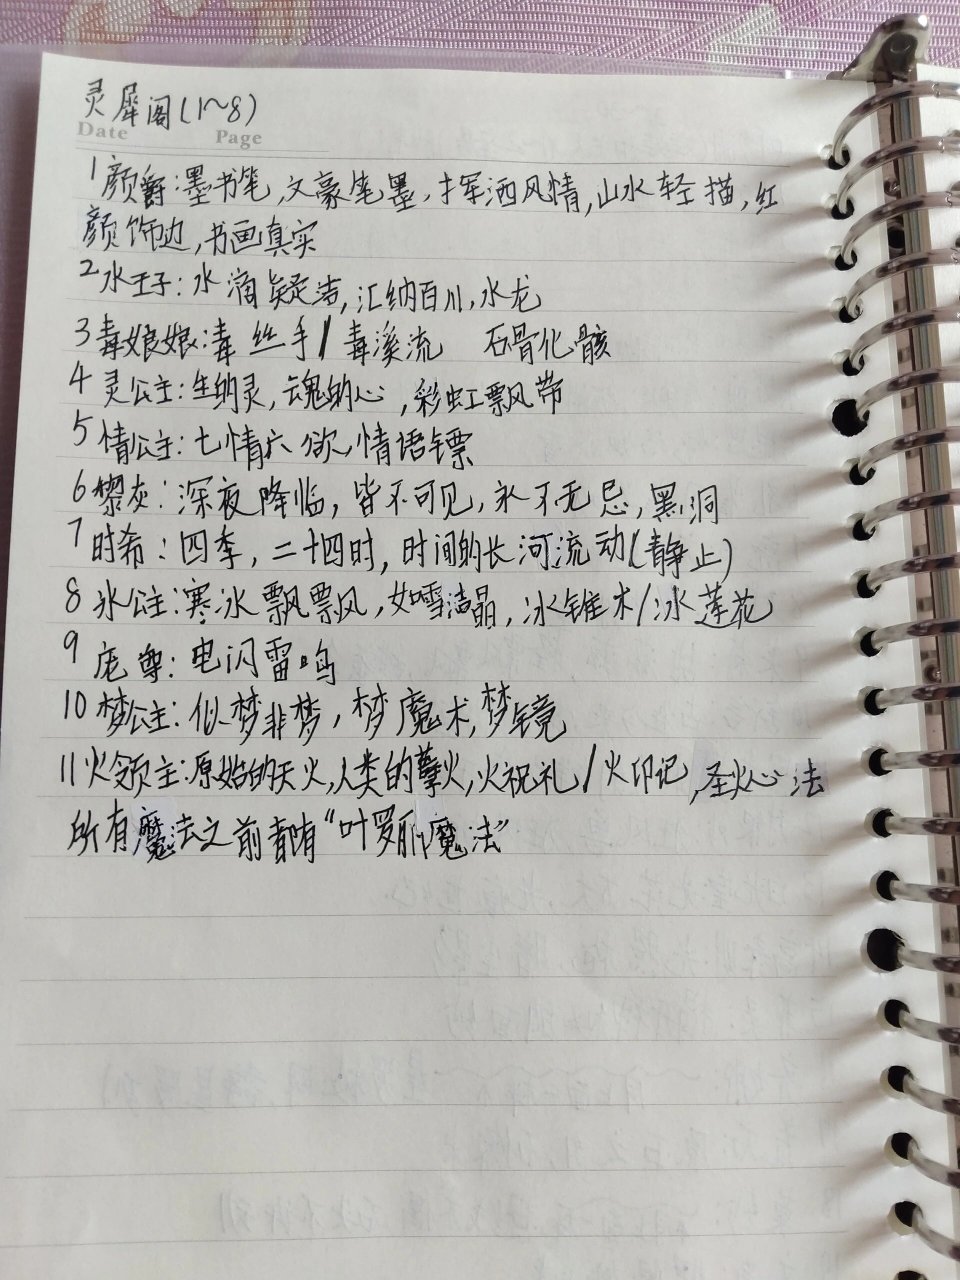 灵犀阁(1~8)
Date Page
1颜爵:墨书笔,文豪笔墨,挥洒风情,山水轻描,红
颜饰边,书画真实
2水王子:水滴凝洁,汇纳百川,水龙
3毒娘娘:毒丝手/毒溪流 石骨化骸
4灵公主:生的灵,魂的心,彩虹飘带
5情公主:七情六欲,情语镖
6黎灰:深夜降临,皆不可见,永不无忌,黑洞
7时希:四季,二十四时,时间的长河流动(静止)
8冰公主:寒冰飘飘,如雪洁晶,冰锥术/冰莲花
9庞尊:电闪雷鸣
10梦公主:似梦非梦,梦魔术,梦镜
11火领主:原始的天火,人类的孽火,火祝礼/火印记,圣火心法
所有魔法之前都有“叶罗丽魔法”